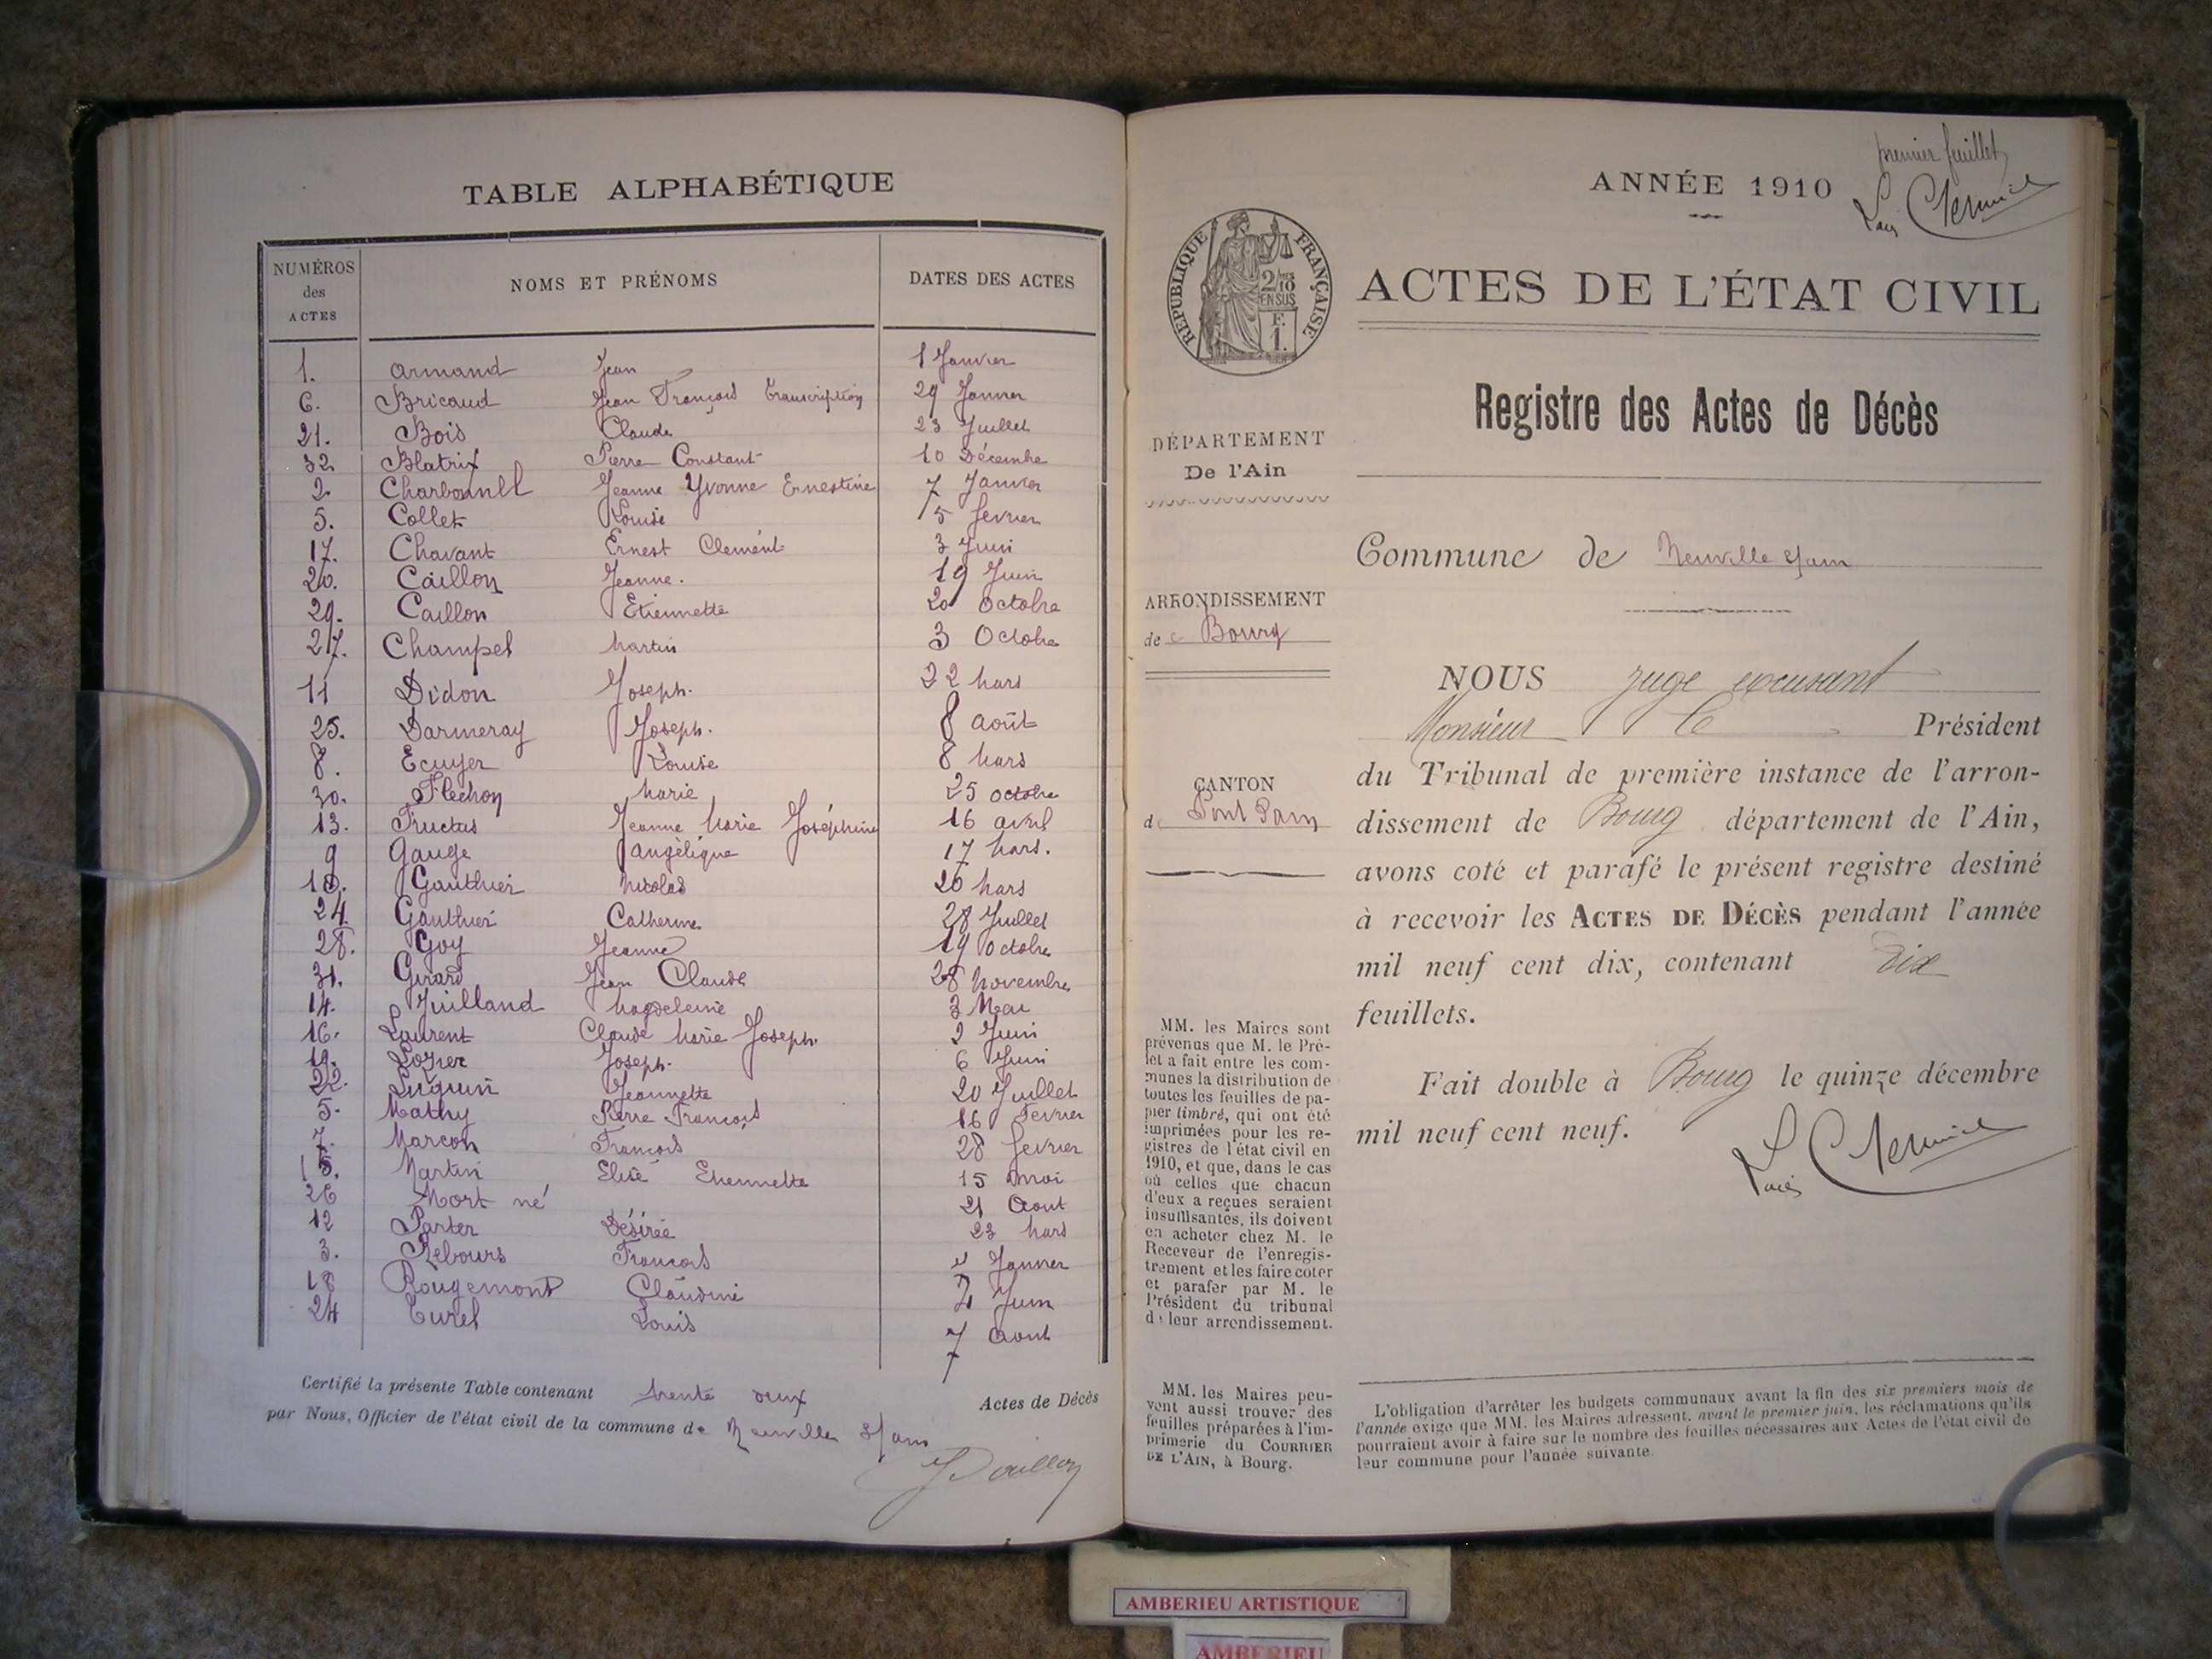 TABLE ALPHABÉTIQUE
NUMÉROS des ACTES NOMS ET PRÉNOMS DATES DES ACTES
1. Armand Jean 1 Janvier
6. Bricaud Jean François transcription 29 Janvier
21. Bois Claude 23 Juillet
32. Blatrix Pierre Constant 10 Décembre
2. Charbonnell Jeanne Yvonne Ernestine 7 Janvier
5. Collet Louise 5 fevrier
17. Chavant Ernest Clement 3 Juin
20. Caillon Jeanne. 19 Juin
29. Caillon Etiennette 20 Octobre
27. Champel Martin 3 Octobre
11 Didon Joseph. 22 Mars
25. Darmeray Joseph. 8 Août
8. Ecuyer Louise 8 Mars
30. Flechon Marie 25 octobre
13. Fructus Jeanne Marie Joséphine 16 avril
9 Gauge Angèlique 17 Mars.
10. Gauthier Nicolas 20 Mars
24. Gauthier Catherine 28 Juillet
28. Goy Jeanne 19 Octobre
31. Girard Jean Claude 28 Novembre
14. Juilland Magdeleine 3 Mai
16. Laurent Claude Marie Joseph. 2 Juin
19. Lozier Joseph. 6 Juin
22. Jeannette 20 Juillet
5. Mathy Pierre François 16 Fevrier
7. Marcon François 28 fevrier
15. Martin Elise Etiennette 15 Mai
26 Mort né 21 Aout
12 Parter Désirée 23 Mars
3. Rebours François Janvier
18 Rougemont Claudine Juin
24 Turel Louis 7 Aout
Certifié la présente Table contenant trente deux Actes de Décès
par Nous, Officier de l'état civil de la commune de Neuville s/ain
premier feuillet
ANNÉE 1910
RÉPUBLIQUE FRANÇAISE
2/10
EN SUS
F.
1.
ACTES DE L'ÉTAT CIVIL
Registre des Actes de Décès
DÉPARTEMENT
De l'Ain
Commune de Neuville s/ain
ARRONDISSEMENT
de Bourg
CANTON
de Pont d'ain
NOUS juge excusant
Monsieur le Président
du Tribunal de première instance de l'arron-
dissement de Bourg département de l'Ain,
avons coté et parafé le présent registre destiné
à recevoir les ACTES DE DÉCÈS pendant l'année
mil neuf cent dix, contenant dix
feuillets.
Fait double à Bourg le quinze décembre
mil neuf cent neuf.
MM. les Maires sont
prévenus que M. le Pré-
fet a fait entre les com-
munes la distribution de
toutes les feuilles de pa-
pier timbré, qui ont été
imprimées pour les re-
gistres de l'état civil en
1910, et que, dans le cas
où celles que chacun
d'eux a reçues seraient
insuffisantes, ils doivent
en acheter chez M. le
Receveur de l'enregis-
trement et les faire coter
et parafer par M. le
Président du tribunal
de leur arrondissement.
MM. les Maires peu-
vent aussi trouver des
feuilles préparées à l'im-
primerie du COURRIER
DE L'AIN, à Bourg.
L'obligation d'arrêter les budgets communaux avant la fin des six premiers mois de
l'année exige que MM. les Maires adressent, avant le premier juin, les réclamations qu'ils
pourraient avoir à faire sur le nombre des feuilles nécessaires aux Actes de l'état civil de
leur commune pour l'année suivante.
AMBERIEU ARTISTIQUE
AMBERIEU